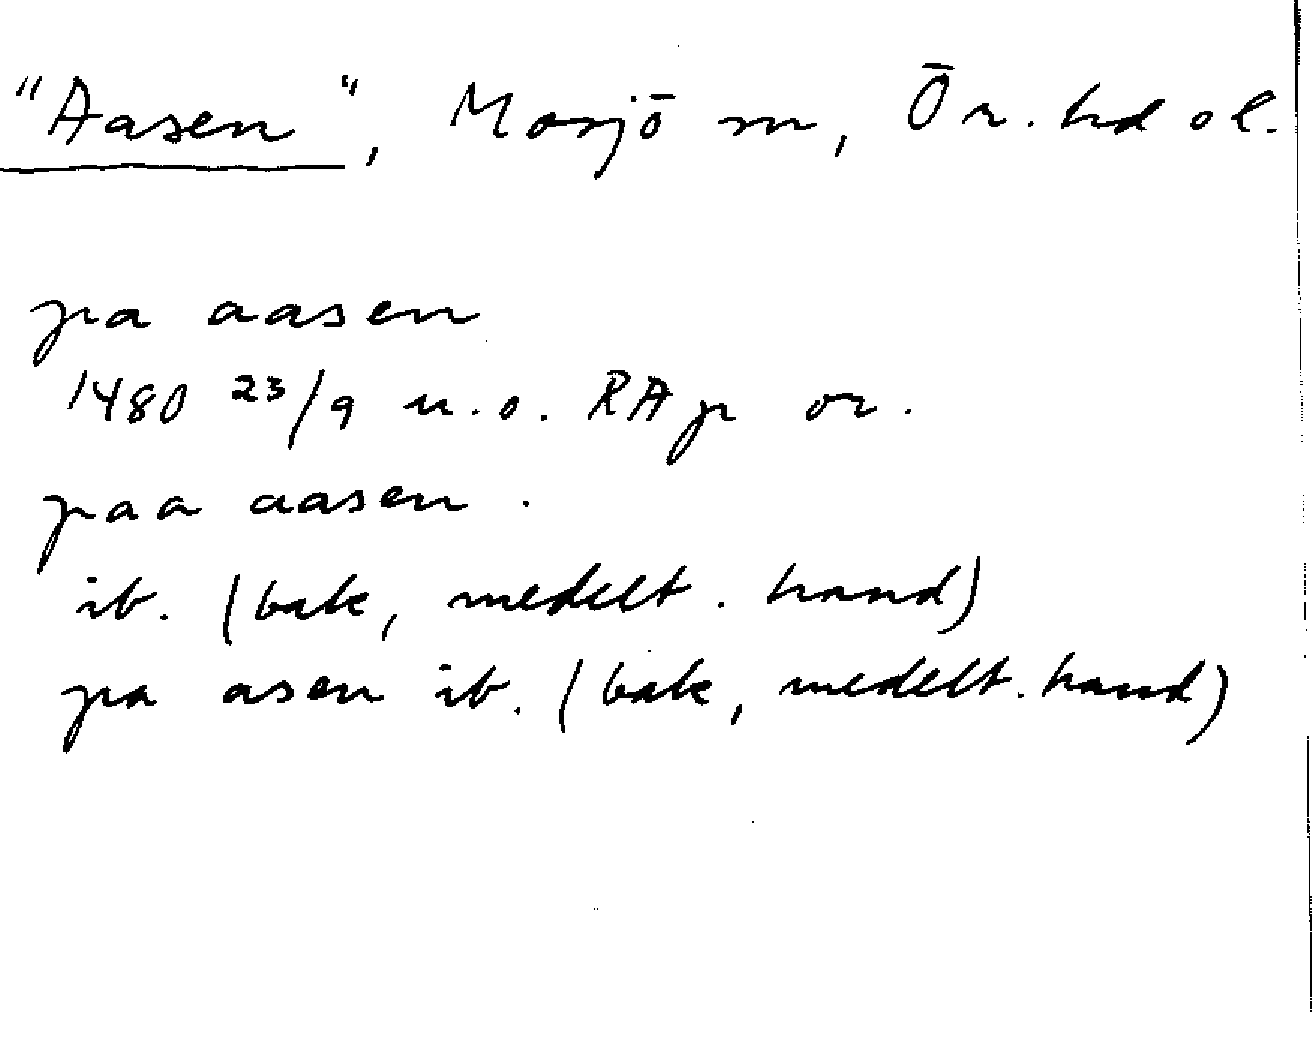 "Aasen", Mosjö sn, Ör. hd ol.
pa aasen
1480 23/9 u.o. RAp or.
paa aasen.
ib. (bak, medelt. hand)
pa asen ib. (bak, medelt. hand)